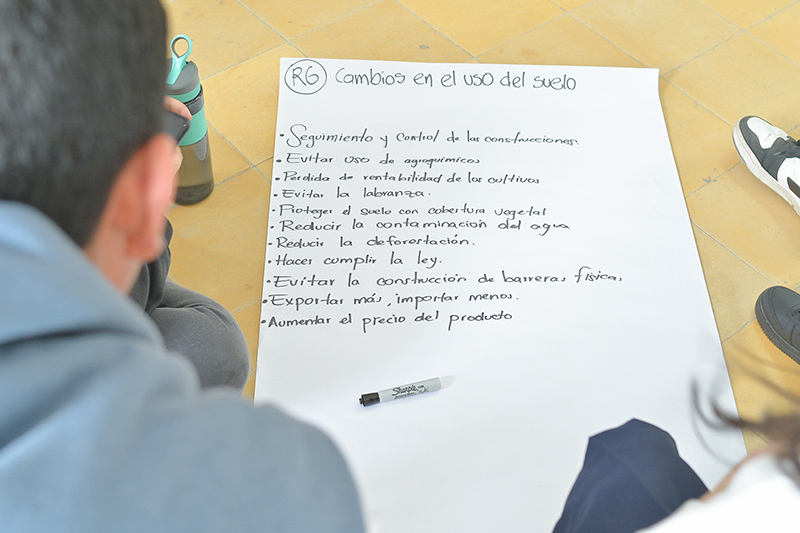 R6 Cambios en el uso del suelo
• Seguimiento y control de las construcciones.
• Evitar uso de agroquímicos
• Pérdida de rentabilidad de los cultivos
• Evitar la labranza.
• Proteger el suelo con cobertura vegetal
• Reducir la contaminación del agua
• Reducir la deforestación.
• Hacer cumplir la ley.
• Evitar la construcción de barreras físicas.
• Exportar más, importar menos.
• Aumentar el precio del producto
Sharpie